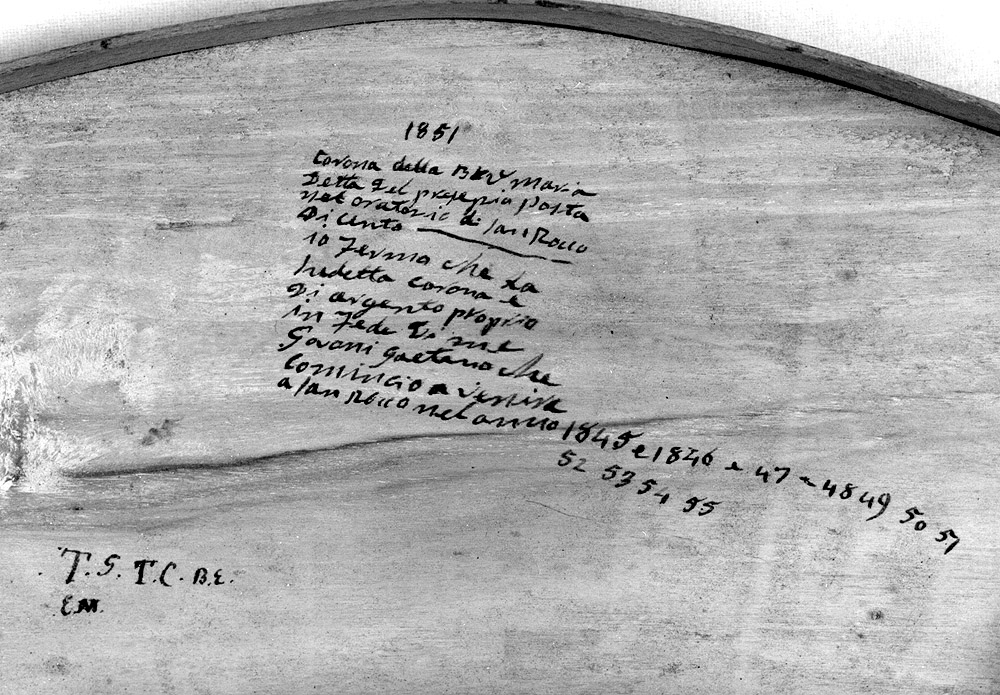 1851
Corona della B V Maria
Detta del presepio posta
nel oratorio di san Rocco
Di Cento
io Fermo che la
sudetta corona e
Di argento proprio
in Fede Di me
Govani Gaetano che
Comincio a venire
a san Rocco nel anno 1845 e 1846 e 47 e 48 49 50 51
52 53 54 55
T. S. T. C. B. E.
E M.